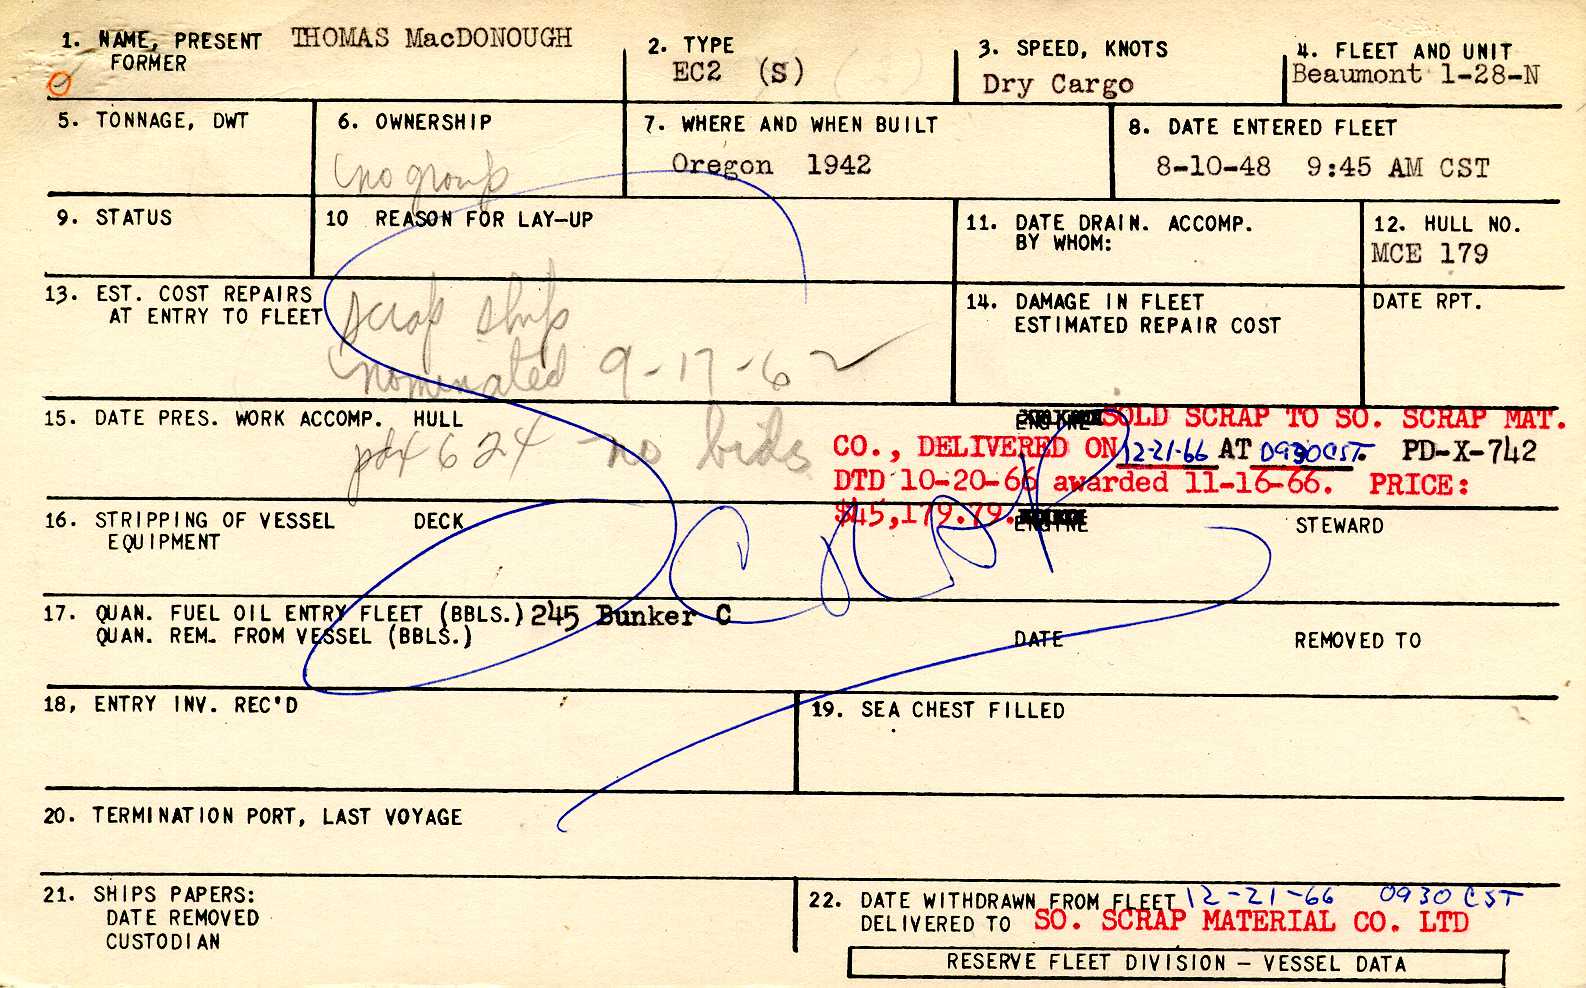 1. NAME, PRESENT THOMAS MacDONOUGH
FORMER
2. TYPE
EC2 (S)
3. SPEED, KNOTS
Dry Cargo
4. FLEET AND UNIT
Beaumont 1-28-N
5. TONNAGE, DWT
6. OWNERSHIP
no group
7. WHERE AND WHEN BUILT
Oregon 1942
8. DATE ENTERED FLEET
8-10-48 9:45 AM CST
9. STATUS
10 REASON FOR LAY-UP
11. DATE DRAIN. ACCOMP.
BY WHOM:
12. HULL NO.
MCE 179
13. EST. COST REPAIRS
AT ENTRY TO FLEET
scrap ship
nominated 9-17-62
14. DAMAGE IN FLEET
ESTIMATED REPAIR COST
DATE RPT.
15. DATE PRES. WORK ACCOMP. HULL
pdx 624 no bids
ENGINE SOLD SCRAP TO SO. SCRAP MAT.
CO., DELIVERED ON 12-21-66 AT 0930 CST. PD-X-742
DTD 10-20-66 awarded 11-16-66. PRICE:
$45,179.79.
16. STRIPPING OF VESSEL DECK ENGINE STEWARD
EQUIPMENT
Scrap
17. QUAN. FUEL OIL ENTRY FLEET (BBLS.) 245 Bunker C
QUAN. REM. FROM VESSEL (BBLS.) DATE REMOVED TO
18, ENTRY INV. REC'D
19. SEA CHEST FILLED
20. TERMINATION PORT, LAST VOYAGE
21. SHIPS PAPERS:
DATE REMOVED
CUSTODIAN
22. DATE WITHDRAWN FROM FLEET 12-21-66 0930 CST
DELIVERED TO SO. SCRAP MATERIAL CO. LTD
RESERVE FLEET DIVISION – VESSEL DATA